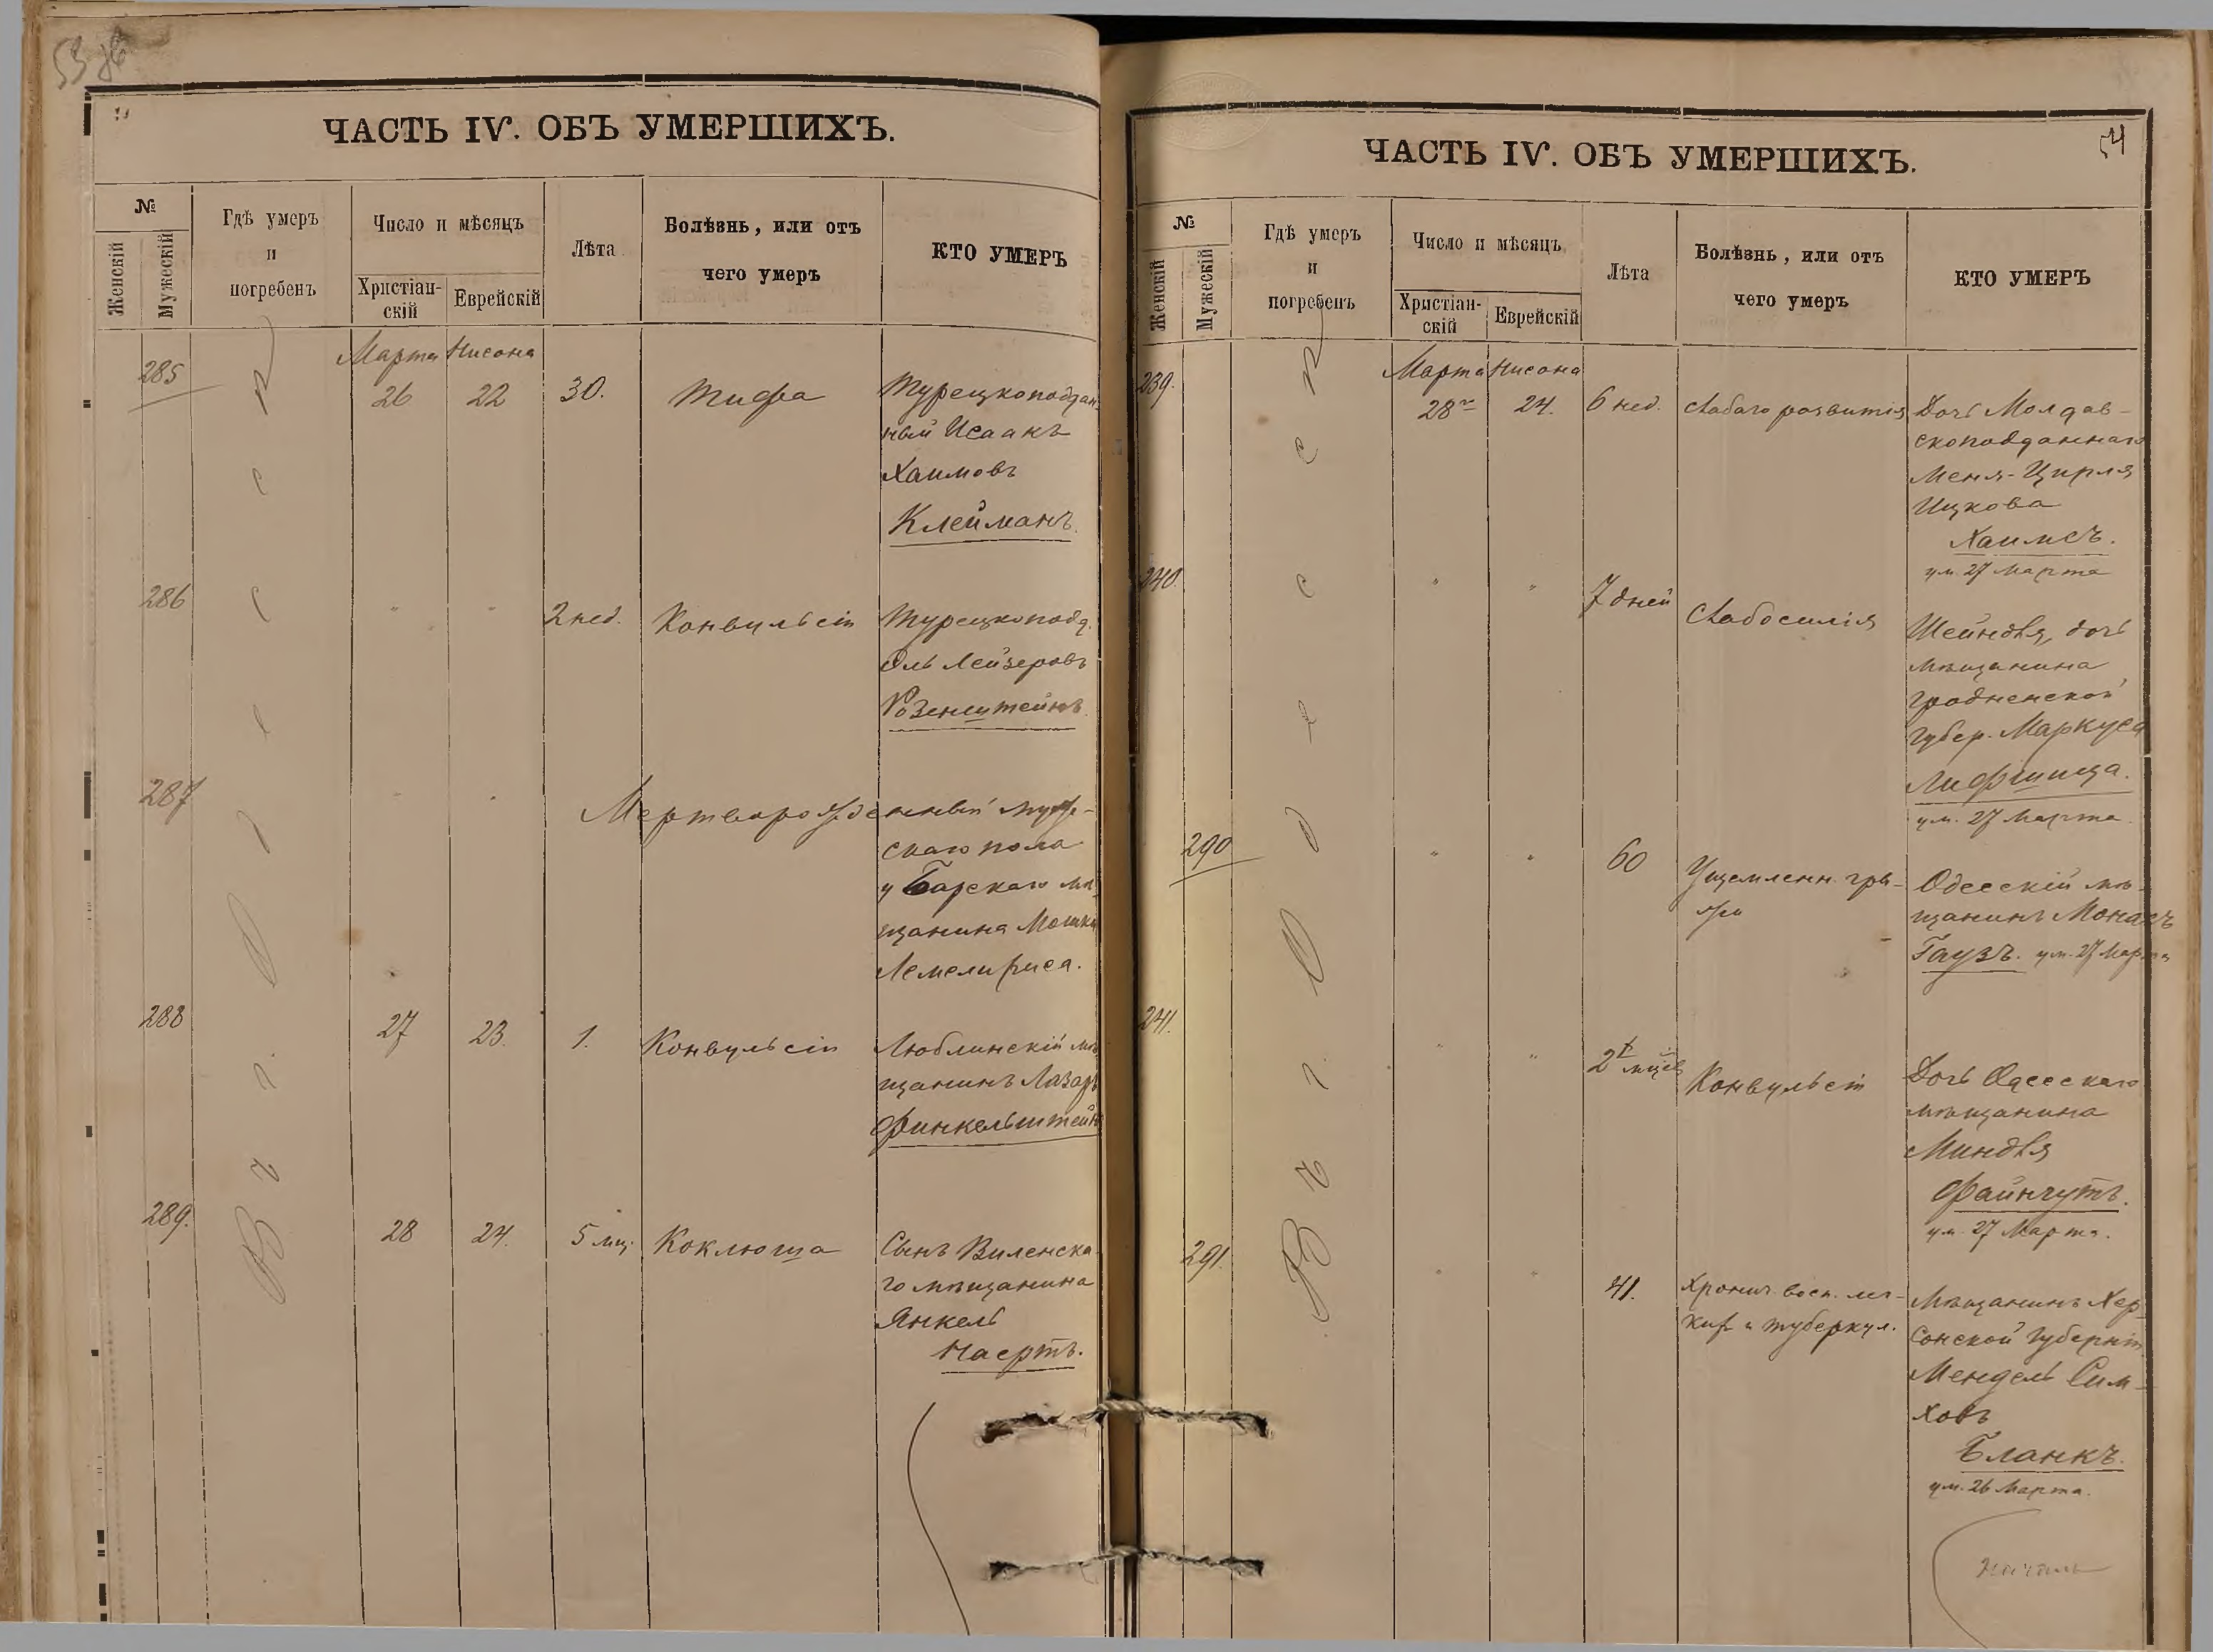 53
ЧАСТЬ IV. ОБЪ УМЕРШИХЪ.
№
Женскій
Мужескій
Гдѣ умеръ
и
погребенъ
Число и мѣсяцъ
Христіан-
скій
Еврейскій
Лѣта
Болѣзнь, или отъ
чего умеръ
КТО УМЕРЪ
Въ г. Одессѣ
Марта Нисона
285 26 22 30. Тифа Турецкоподдан-
ный Исаакъ
Хаимовъ
Клейманъ.
286 " " 2 нед. Конвульсіи Турецкопод.
Лейзеровъ
Розенштейнъ
287 " " Мертворожденный муж-
скаго пола
у Барскаго мѣ-
щанина Мошки
288 27 23. 1. Конвульсіи Люблинскій мѣ-
щанинъ Лазарь
Финкельштейнъ
289. 28 24. 5 мц. Коклюша Сынъ Виленска-
го мѣщанина
Янкель
54
ЧАСТЬ IV. ОБЪ УМЕРШИХЪ.
№
Женскій
Мужескій
Гдѣ умеръ
и
погребенъ
Число и мѣсяцъ
Христіан-
скій
Еврейскій
Лѣта
Болѣзнь, или отъ
чего умеръ
КТО УМЕРЪ
Въ г. Одессѣ
Марта Нисона
239. 28 24. 6 нед. Слабаго развитія Дочь Молдав-
скоподданнаго
Меня-Цирля
Ицкова
Хаимсъ.
ум. 27 Марта
240. " " 7 дней Слабосилія Шейндля, дочь
мѣщанина
Гродненской
губер. Маркуса
Лифшица.
ум. 27 Марта.
290 " " 60 Ущемленн. гры-
жи Одесскій мѣ-
щанинъ Монасъ
Гаузъ. ум. 27 Марта
241. " " 2 Конвульсіи Дочь Одесскаго
мѣщанина
Миндля
Файнгутъ.
ум. 27 Марта.
291. " " 41. Хронич. восп. лег-
ких и туберкул. Мѣщанинъ Хер-
сонской Губерніи
Мендель Сим-
ховъ
Бланкъ.
ум. 26 Марта.